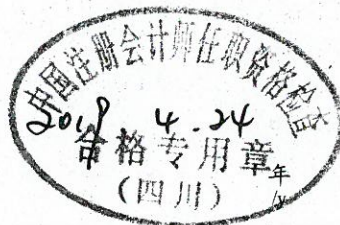 中国注册会计师任职资格检查
2019 4.24
合格专用章
年
(四川)